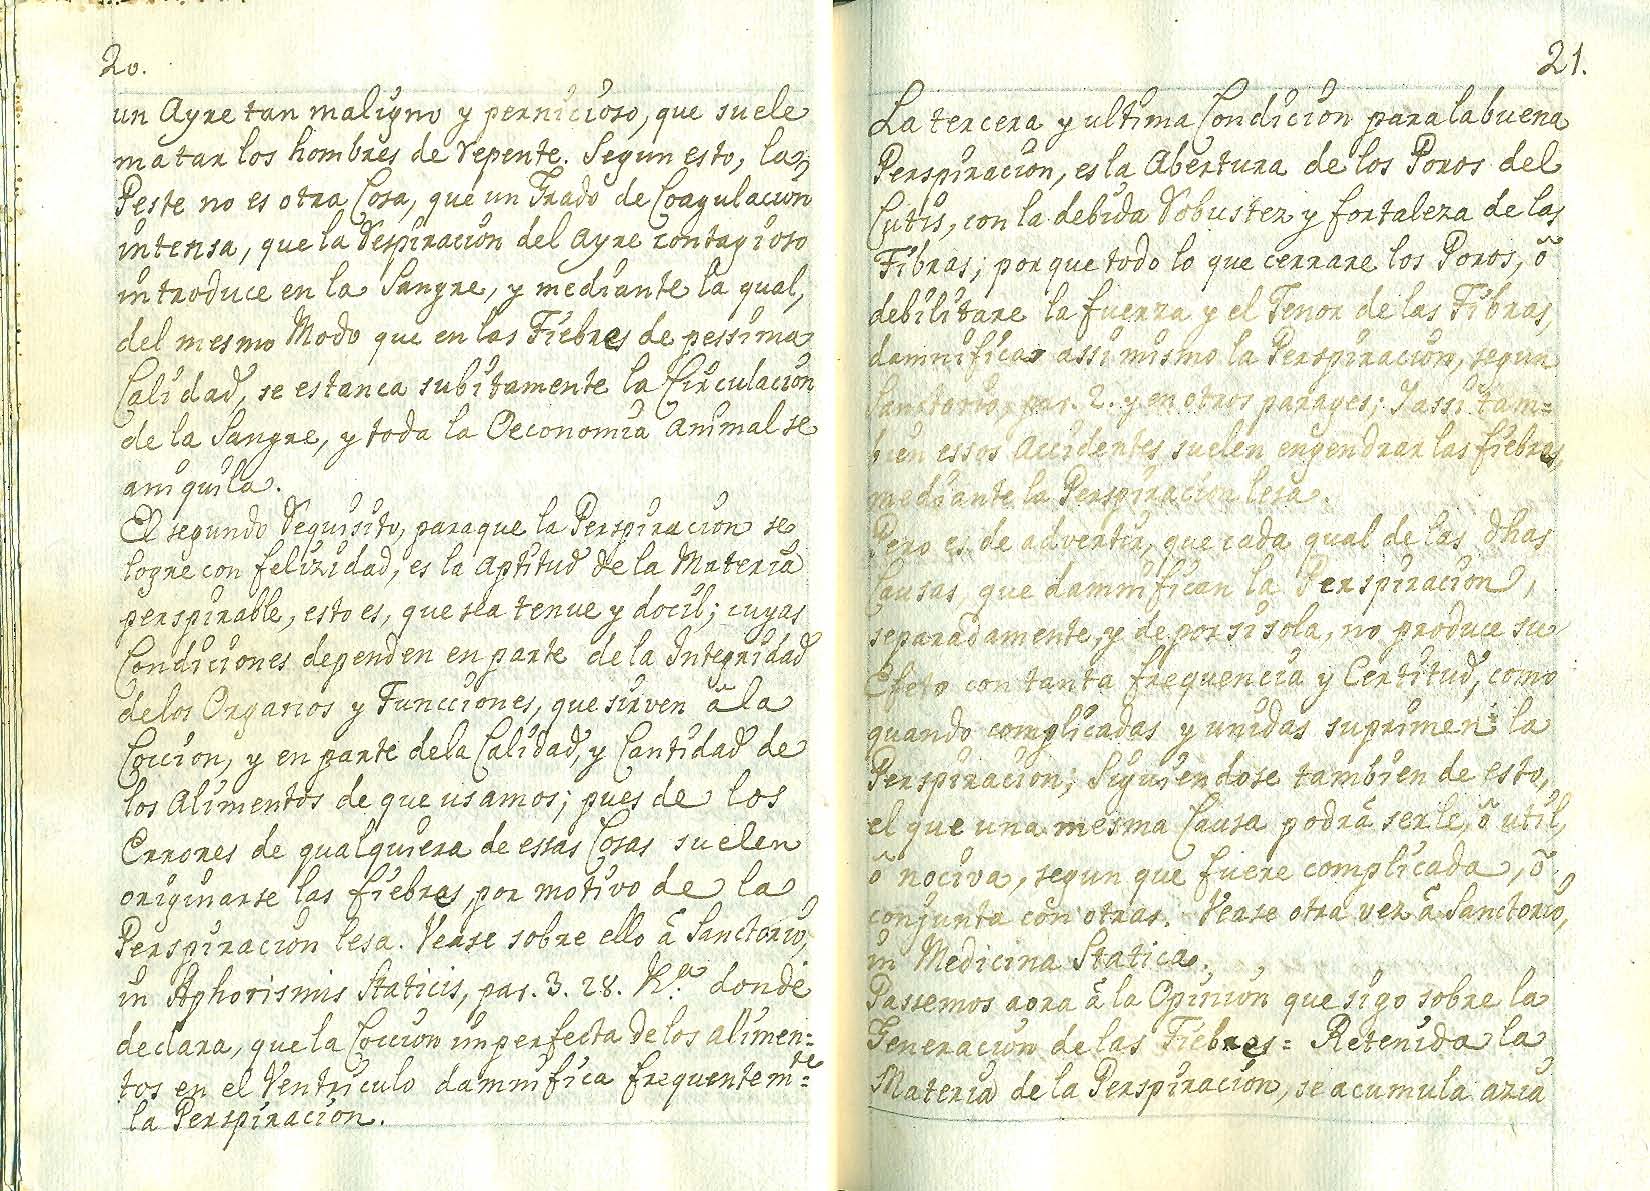 20.
un Ayre tan maligno y pernicioso, que suele
matar los hombres de repente. Segun esto, la
Peste no es otra Cosa, que un Grado de Coagulacion
intensa, que la Respiracion del Ayre contagioso
introduce en la Sangre, y mediante la qual,
del mesmo Modo que en las Fiebres de pessima
Calidad, se estanca subitamente la Circulacion
de la Sangre, y toda la Oeconomia animal se
aniquila.
El segundo Requisito, paraque la Perspiracion se
logre con felizidad, es la Aptitud de la Materia
perspirable, esto es, que sea tenue y docil; cuyas
Condiciones dependen en parte de la Integridad
de los Organos y Funcciones, que sirven â la
Coccion, y en parte de la Calidad, y Cantidad de
los Alimentos de que usamos; pues de los
Errores de qualquiera de essas Cosas suelen
originarse las fiebres, por motivo de la
Perspiracion lesa. Vease sobre ello â Sanctorio,
in Aphorismis Staticis, par. 3. 28. &.ª donde
declara, que la Coccion imperfecta de los alimen=
tos en el Ventriculo damnifica frequentem.te=
la Perspiracion.
21.
La tercera y ultima Condicion para la buena
Perspiracion, es la Abertura de los Poros del
Cutis, con la debida Robustez y fortaleza de las
Fibras; porque todo lo que cerrare los Poros, õ
debilitare la fuerza y el Tenor de las Fibras,
damnifica assimismo la Perspiracion, segun
Sanctorio, par. 2. y en otros parages; Y assi tam=
bien essos Accidentes suelen engendrar las fiebres,
mediante la Perspiracion lesa.
Pero es de advertir, que cada qual de las dhas
Causas, que damnifican la Perspiracion,
separadamente, y de por si sola, no produce su
Efeto con tanta frequencia y Certitud, como
quando complicadas y unidas suprimen la
Perspiracion; Siguiendose tambien de esto,
el que una mesma Causa podrâ serle, õ util,
õ nociva, segun que fuere complicada, õ
conjunta con otras. Vease otra vez â Sanctorio,
in Medicina Statica.
Passemos aora â la Opinion que sigo sobre la
Generacion de las Fiebres= Retenida la
Materia de la Perspiracion, se acumula azia